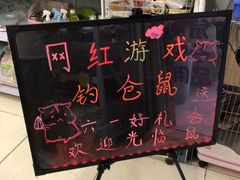 网红游戏
钓仓鼠
六一好礼
送仓鼠
欢迎光临